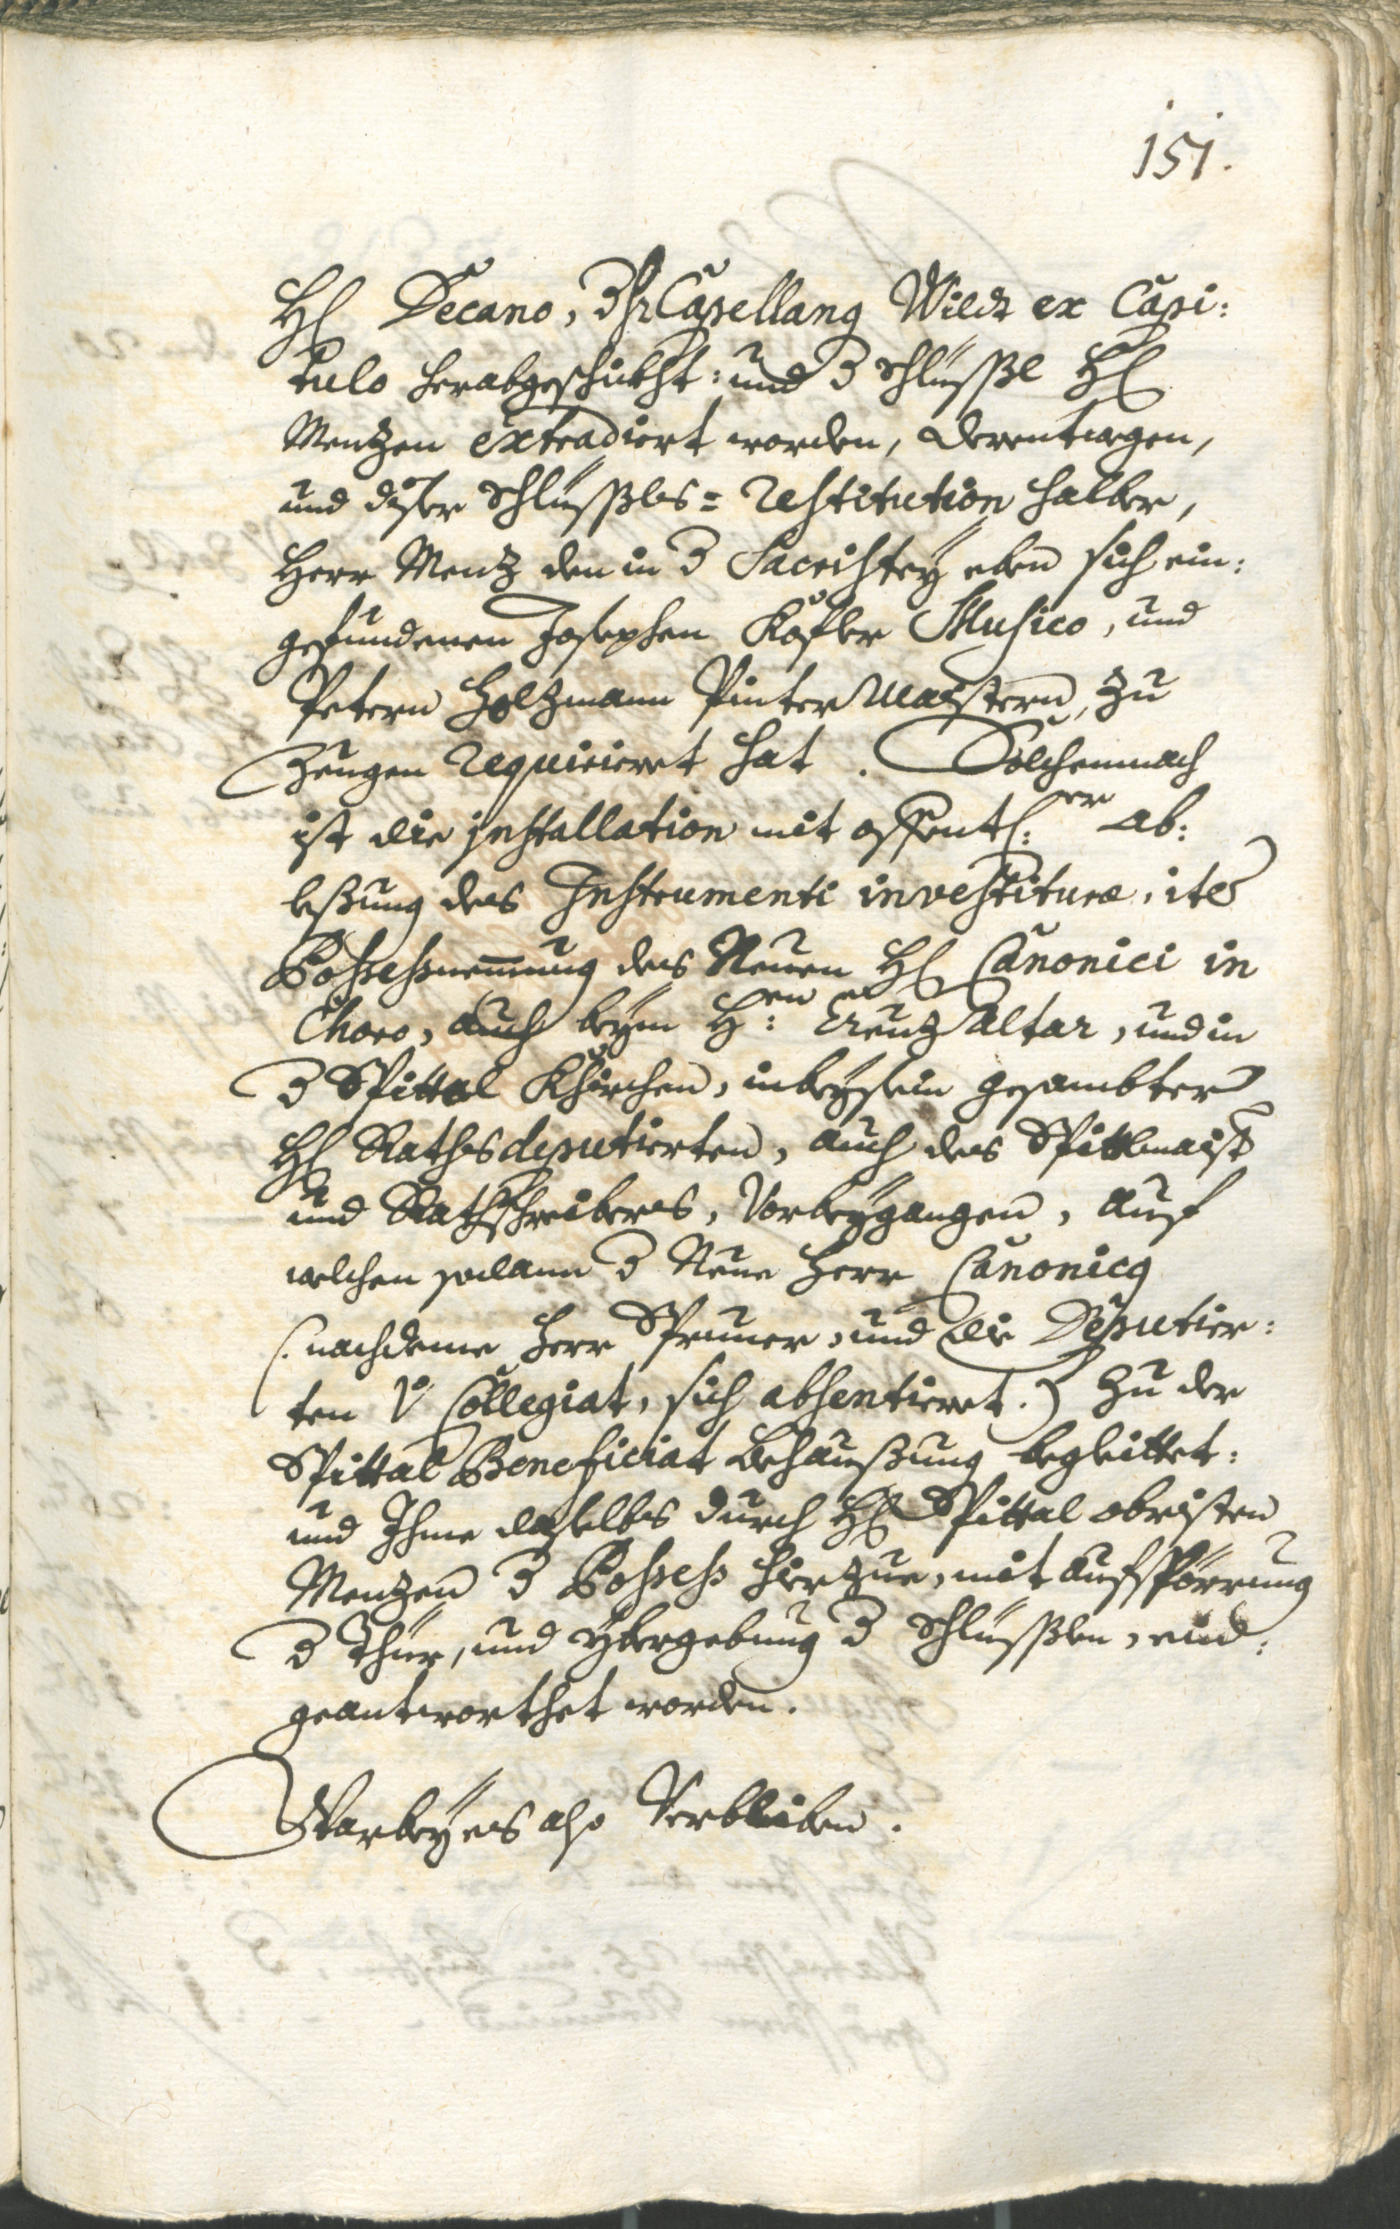 151.
H: Decano, d H: Capellanus Wildt ex Capi:
tulo herabgeschikht: und d Schlüssl H:
Mentzen extradiert worden, derentwegen,
und diser Schlüssls= restitution halber,
Herr Mentz den in d Sacristey eben sich ein:
gefundenen Josephen Kofler Musico, und
Petern Holtzmann Pinter Maistern, zu
Zeugen requirieret hat. Solchemnach
ist die installation mit offentl:er ab:
leßung des Instrumenti investituræ, item
Possessnemmung des Neuen H: Canonici in
Choro, auch beym H:en Creutz Altar, und in
d Spittal Khirchen, in beysein gesambter
H: Raths deputierten, auch des Spittlmaister
und Rathschreibers, Vorbeygangen, auf
welchen sodann d Neue Herr Canonicus
(: nachdeme Herr Spruner, und die Deputier:
ten V: Collegiat, sich absentieret :) zu der
Spittal Beneficiat Behaußung begleittet:
und Ihme daselbs durch H: Spittal obristen
Mentzen d Possess hierzue, mit aufspörrung
d Thür, und ybergebung d Schlüsslen, eind:
geantworthet worden.
Warbey es also Verbliben.